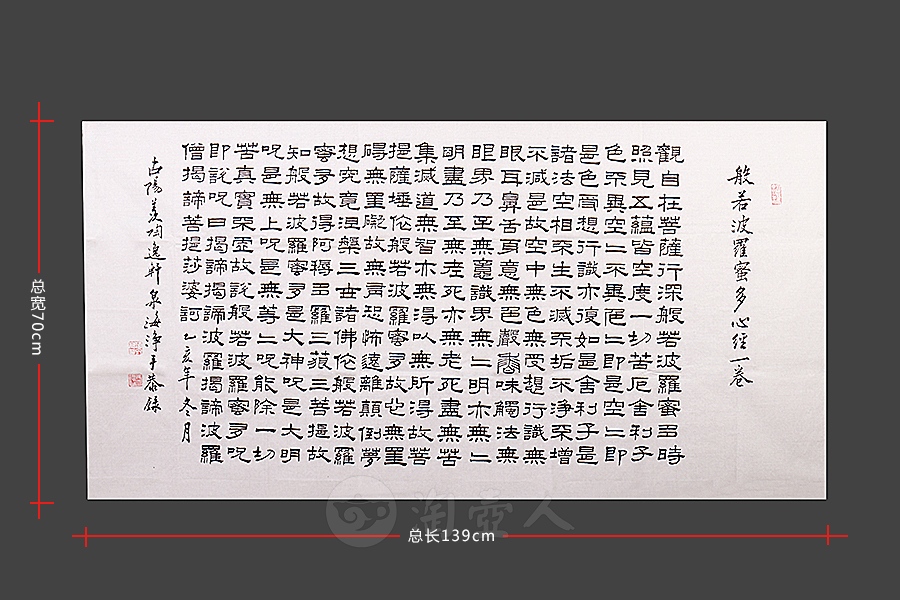 般若波羅蜜多心經一卷
觀自在菩薩行深般若波羅蜜多時
照見五蘊皆空度一切苦厄舍利子
色不異空二不異色二即是空二即
是色受想行識亦復如是舍利子是
諸法空相不生不滅不垢不淨不增
不減是故空中無色無受想行識無
眼耳鼻舌身意無色聲香味觸法無
眼界乃至無意識界無二明亦無二
明盡乃至無老死亦無老死盡無苦
集滅道無智亦無得以無所得故菩
提薩埵依般若波羅蜜多故心無罣
礙無罣礙故無有恐怖遠離顛倒夢
想究竟涅槃三世諸佛依般若波羅
蜜多故得阿耨多羅三藐三菩提故
知般若波羅蜜多是大神呪是大明
呪是無上呪是無等二呪能除一切
苦真實不虛故說般若波羅蜜多呪
即說呪曰揭諦揭諦波羅揭諦波羅
僧揭諦菩提莎婆訶乙亥年冬月
古陽羨陶逸軒泉海淨手恭錄
总宽70cm
总长139cm
淘壶人